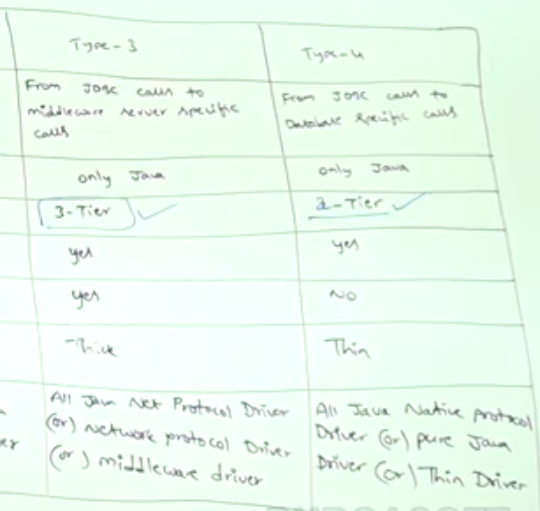 Type-3
Type-4
From JDBC calls to
middleware server specific
calls
From JDBC calls to
Database specific calls
only Java
only Java
3-Tier
2-Tier
yes
yes
yes
NO
Thick
Thin
All Java Net Protocol Driver
(or) Network protocol Driver
(or) middleware driver
All Java Native protocol
Driver (or) pure Java
Driver (or) Thin Driver